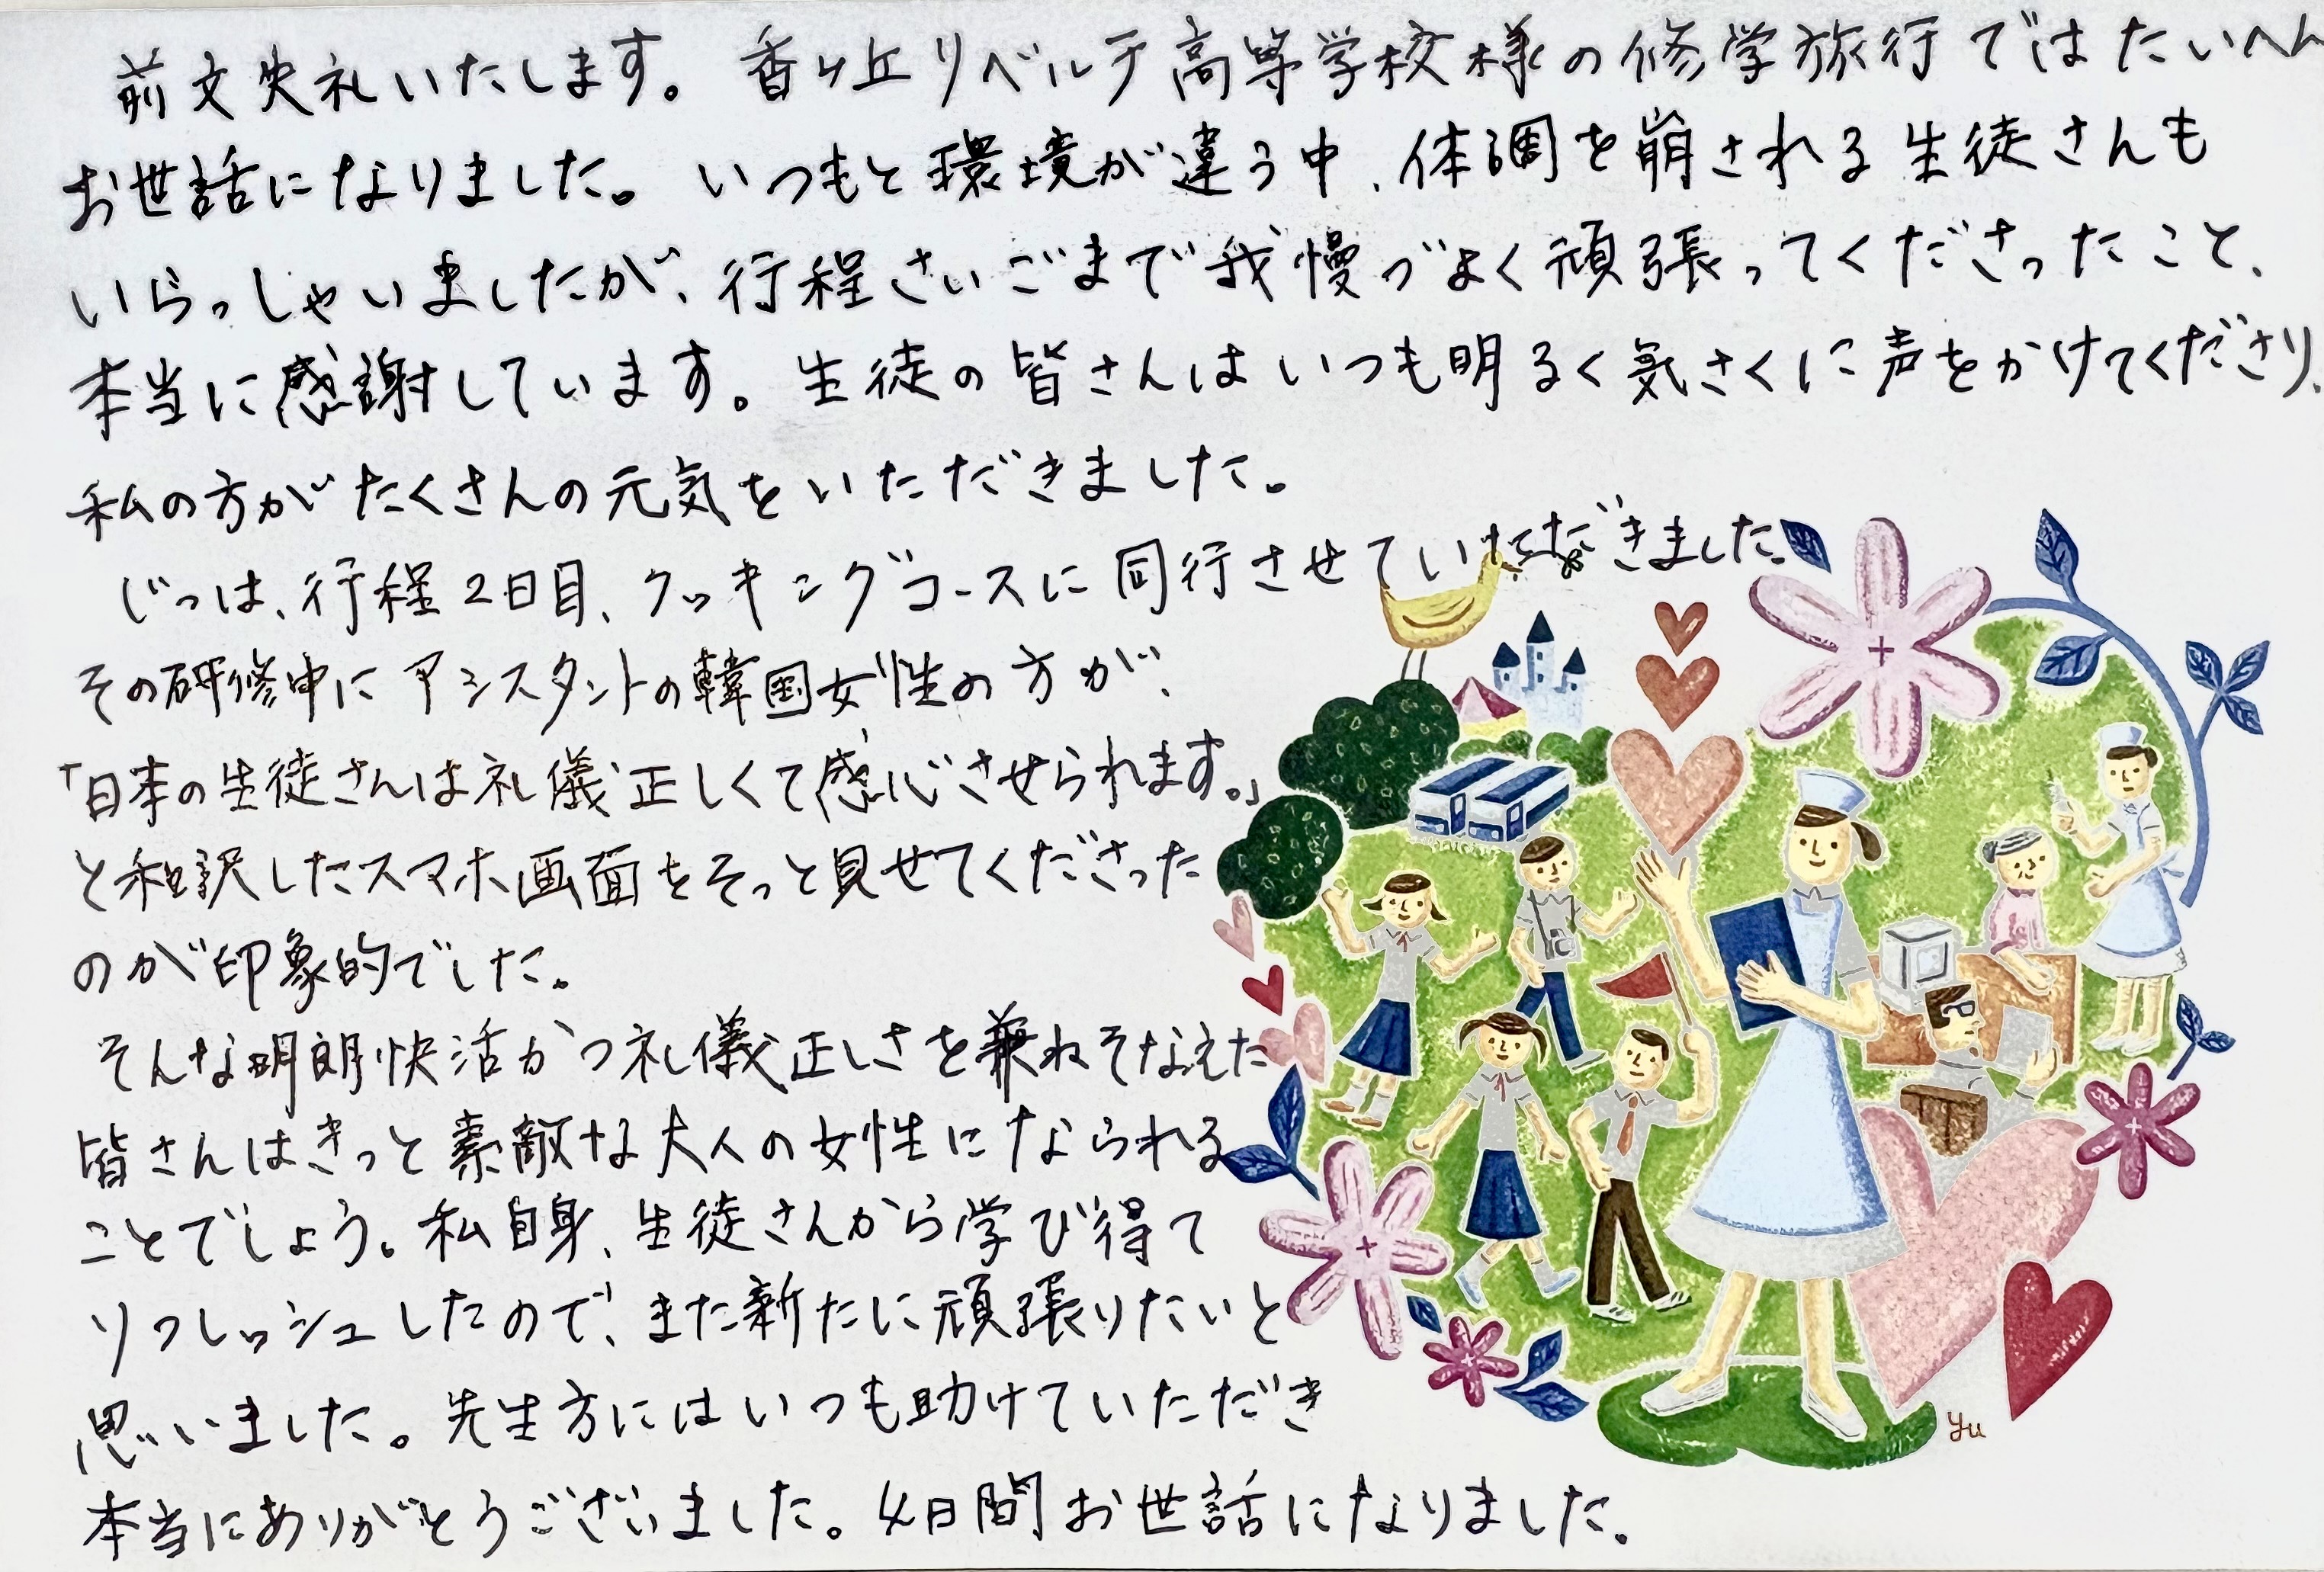 前文失礼いたします。香ヶ丘リベルテ高等学校様の修学旅行ではたいへん
お世話になりました。いつもと環境が違う中、体調を崩される生徒さんも
いらっしゃいましたが、行程さいごまで我慢づよく頑張ってくださったこと、
本当に感謝しています。生徒の皆さんはいつも明るく気さくに声をかけてくださり、
私の方がたくさんの元気をいただきました。
じつは、行程2日目、クッキングコースに同行させていただきました。
その研修中にアシスタントの韓国女性の方が、
「日本の生徒さんは礼儀正しくて感心させられます。」
と和訳したスマホ画面をそっと見せてくださった
のが印象的でした。
そんな明朗快活かつ礼儀正しさを兼ねそなえた
皆さんはきっと素敵な大人の女性になられる
ことでしょう。私自身、生徒さんから学び得て
リフレッシュしたので、また新たに頑張りたいと
思いました。先生方にはいつも助けていただき
本当にありがとうございました。4日間お世話になりました。
yu